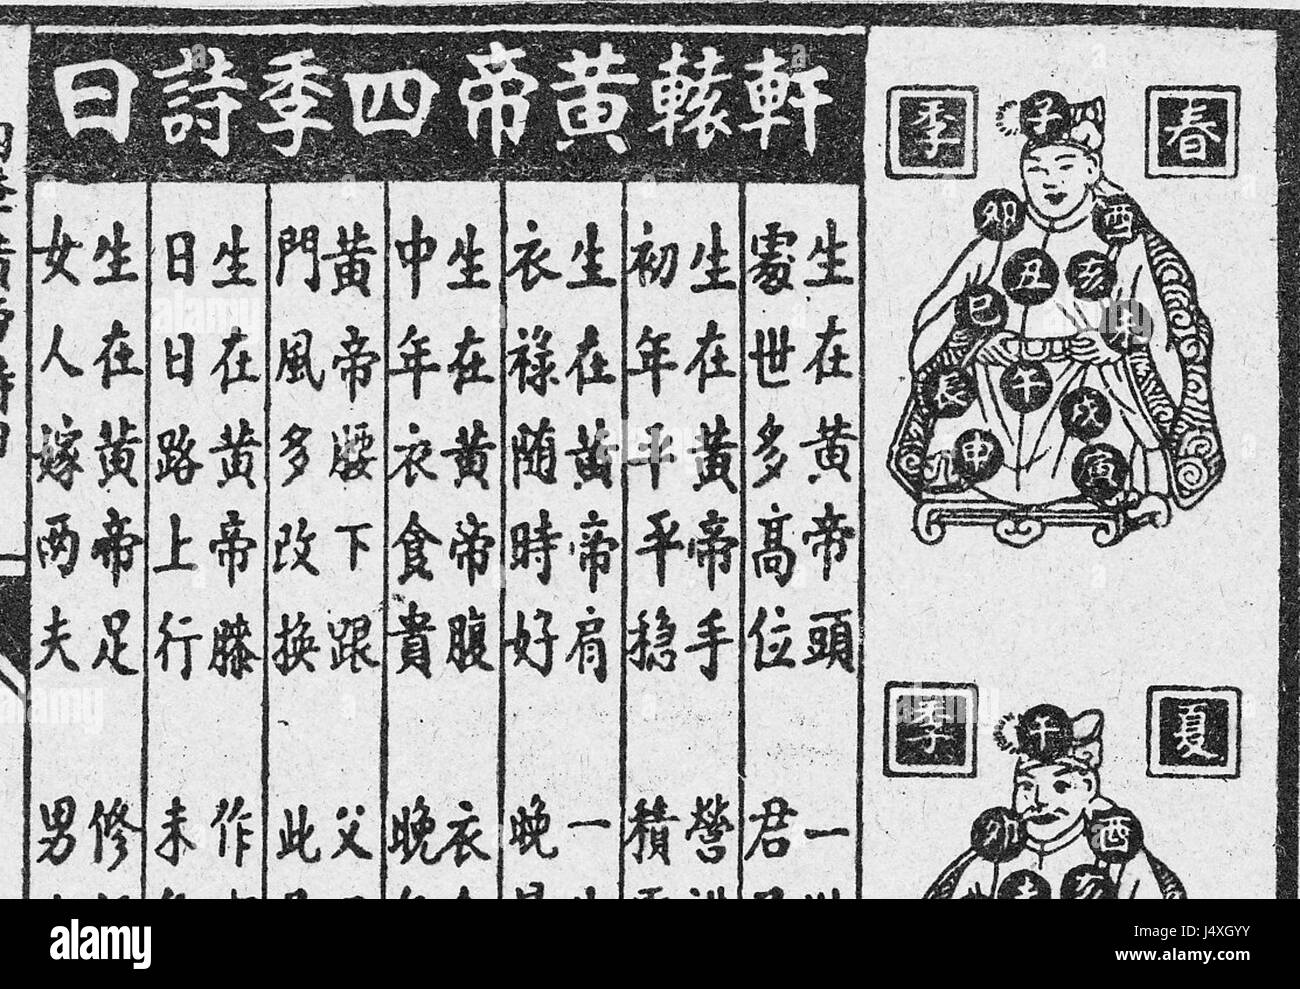 軒轅黃帝四季詩曰
春季
子
卯 酉
丑 亥
巳 未
辰 午 戌
申 寅
夏季
午
卯 酉
亥
生在黃帝頭 一
處世多高位 君
生在黃帝手 營
初年平平穩 積
生在黃帝肩 一
衣祿随時好 晚
生在黃帝腹 衣
中年衣食貴 晚
黃帝腰下跟 父
門風多改換 此
生在黃帝膝 作
日日路上行 未
生在黃帝足 修
女人嫁两夫 男
alamy
Image ID: J4XGYY
www.alamy.com